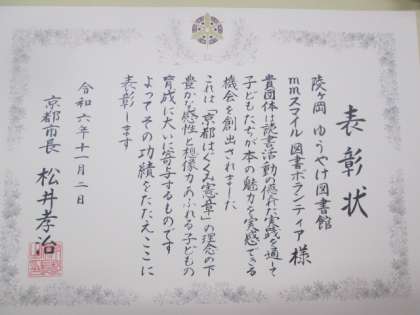 表彰状
陵ヶ岡 ゆうやけ図書館
mmスマイル 図書ボランティア 様
貴団体は読書活動の優れた実践を通して
子どもたちが本の魅力を実感できる
機会を創出されました
これは「京都はぐくみ憲章」の理念の下
豊かな感性と想像力あふれる子どもの
育成に大いに寄与するものです
よってその功績をたたえここに
表彰します
令和六年十一月二日
京都市長 松井孝治